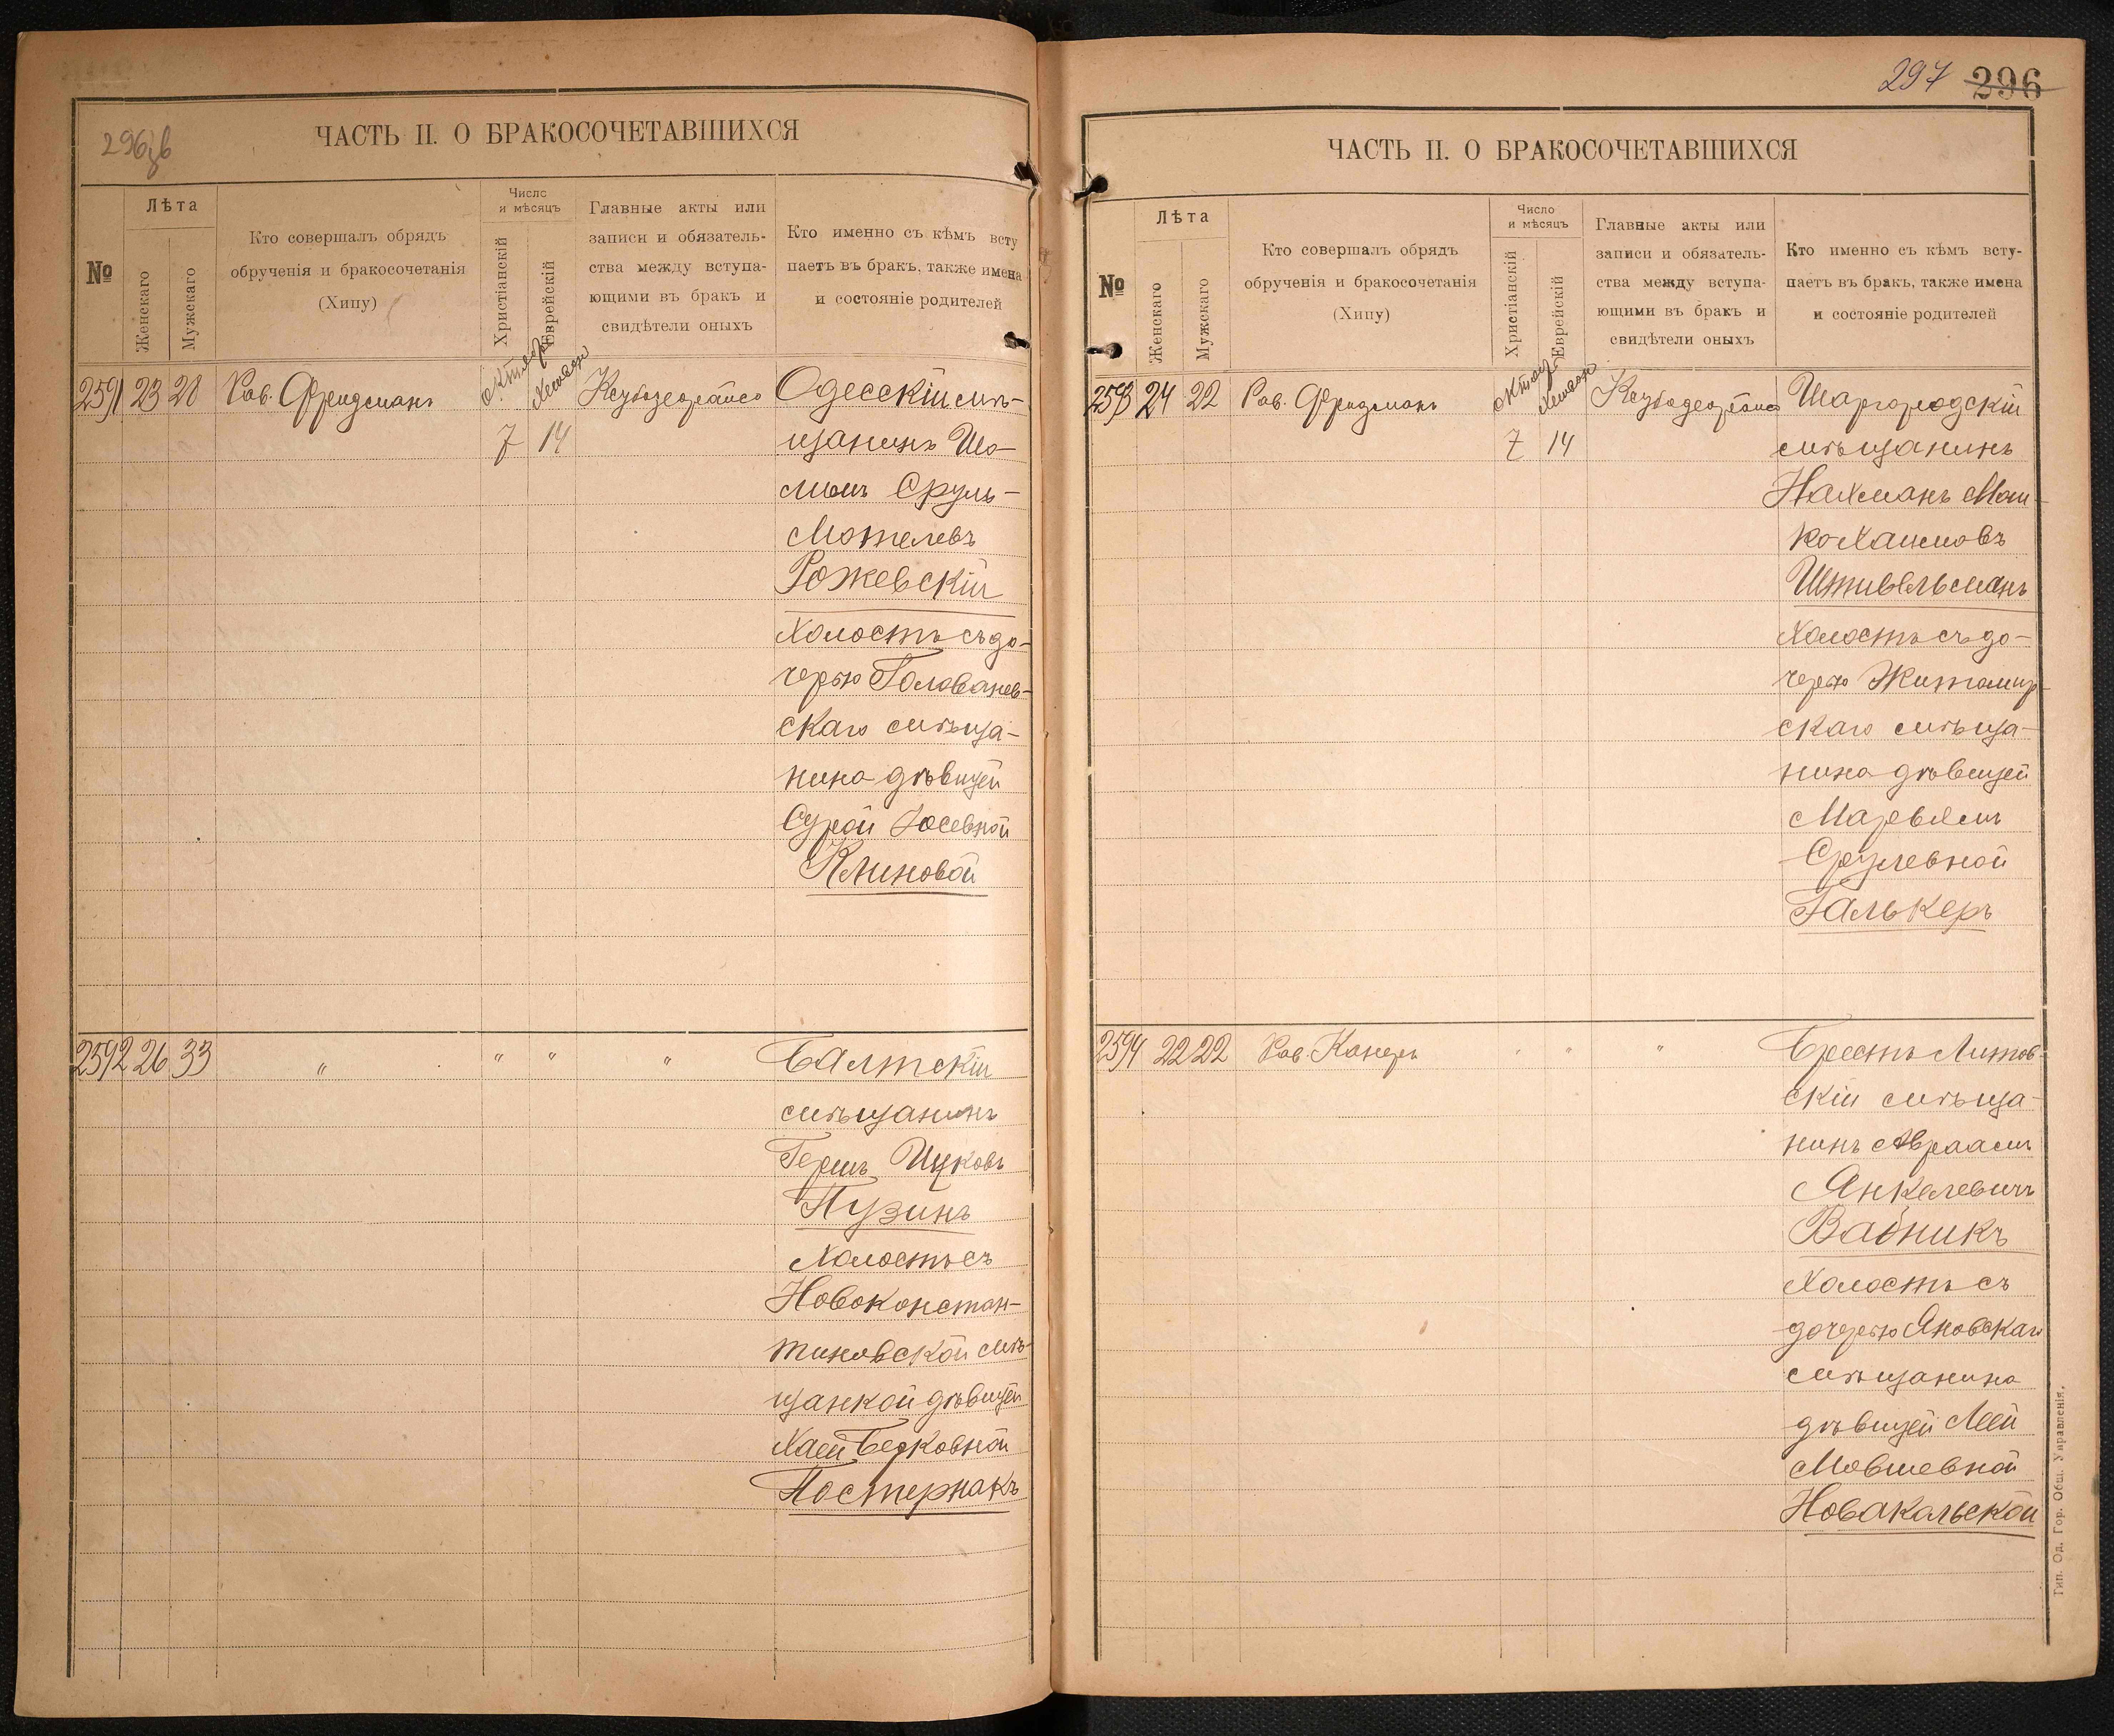 296 зв
ЧАСТЬ II. О БРАКОСОЧЕТАВШИХСЯ
№
Лѣта
Женскаго
Мужскаго
Кто совершалъ обрядъ
обрученія и бракосочетанія
(Хипу)
Число
и мѣсяцъ
Христіанскій
Еврейскій
Главные акты или
записи и обязатель-
ства между вступа-
ющими въ бракъ и
свидѣтели оныхъ
Кто именно съ кѣмъ всту
паетъ въ бракъ, также имена
и состояніе родителей
2591 23 28 Рав. Фридманъ
Одесскій мѣ-
7 14 щанинъ Шо-
лымъ Сруль-
Мотелевъ
Рожевскій
Холостъ съ до-
черью Голованев-
скаго мѣща-
нина дѣвицей
Сурой Іосевной
Клиновой
2592 26 33 " " " " Балтскій
мѣщанинъ
Гершъ Ицковъ
Пузинъ
Холостъ съ
Новоконстан-
тиновской мѣ-
щанкой дѣвицей
Хаей Берковной
Постернакъ
297 296
ЧАСТЬ II. О БРАКОСОЧЕТАВШИХСЯ
№
Лѣта
Женскаго
Мужскаго
Кто совершалъ обрядъ
обрученія и бракосочетанія
(Хипу)
Число
и мѣсяцъ
Христіанскій
Еврейскій
Главные акты или
записи и обязатель-
ства между вступа-
ющими въ бракъ и
свидѣтели оныхъ
Кто именно съ кѣмъ всту-
паетъ въ бракъ, также имена
и состояніе родителей
2593 24 22 Рав. Фридманъ
Шаргородскій
7 14 мѣщанинъ
Нахманъ Мош-
коХаимовъ
Штивельманъ
Холостъ съ до-
черью Житомир-
скаго мѣща-
нина дѣвицей
Марьямъ
Срулевной
Галькеръ
2594 22 22 Рав. Канеръ " " " Брестъ Литов-
скій мѣща-
нинъ Авраамъ
Янкелевичъ
Вайникъ
Холостъ съ
дочерью Яновскаго
мѣщанина
дѣвицей Леей
Мовшевной
Новакальской
Тип. Од. Гор. Общ. Управленія.